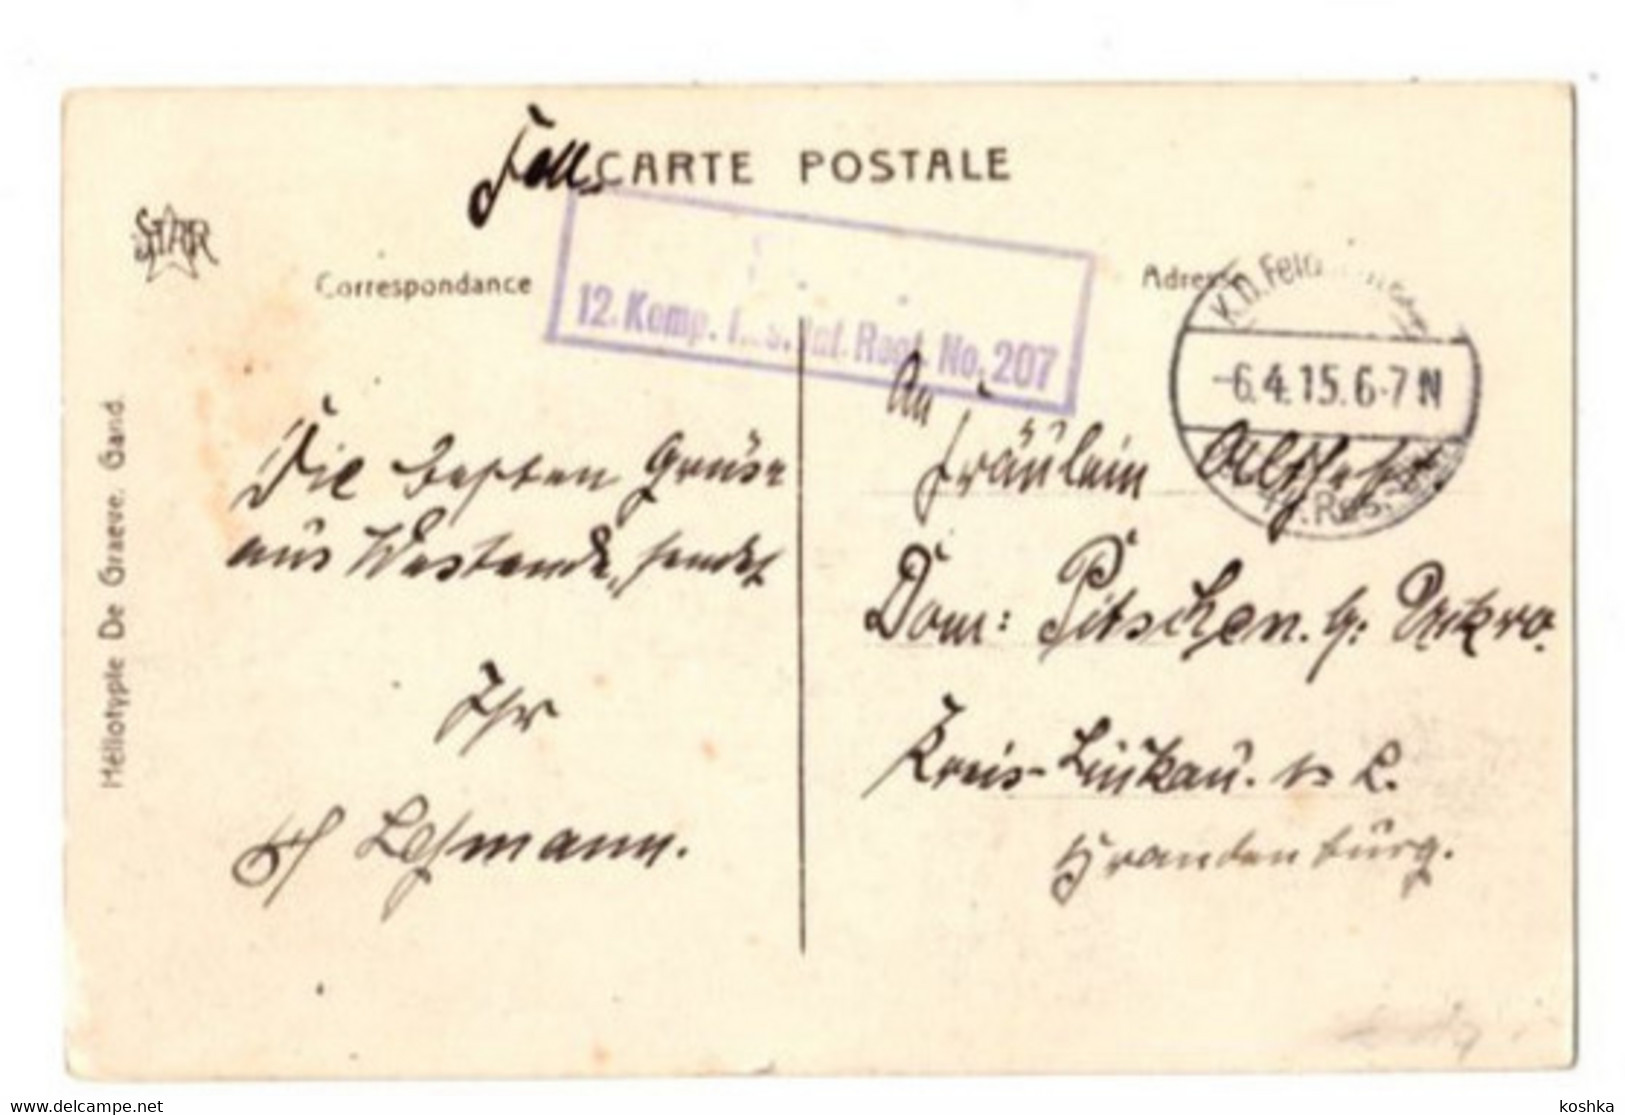 CARTE POSTALE
STAR
Correspondance
Adresse
12. Komp. Res. Inf. Regt. No. 207
K.D. Feld
-6.4.15.6-7 N
Res.
An
Fräulein
Dom: Pitschen. b: Uckro.
Kreis-Luckau.
Brandenburg.
Die besten Grüse
aus Westende, sendet
Ihr
Lehmann.
Héliotypie De Graeve, Gand.
delcampe.net
koshka